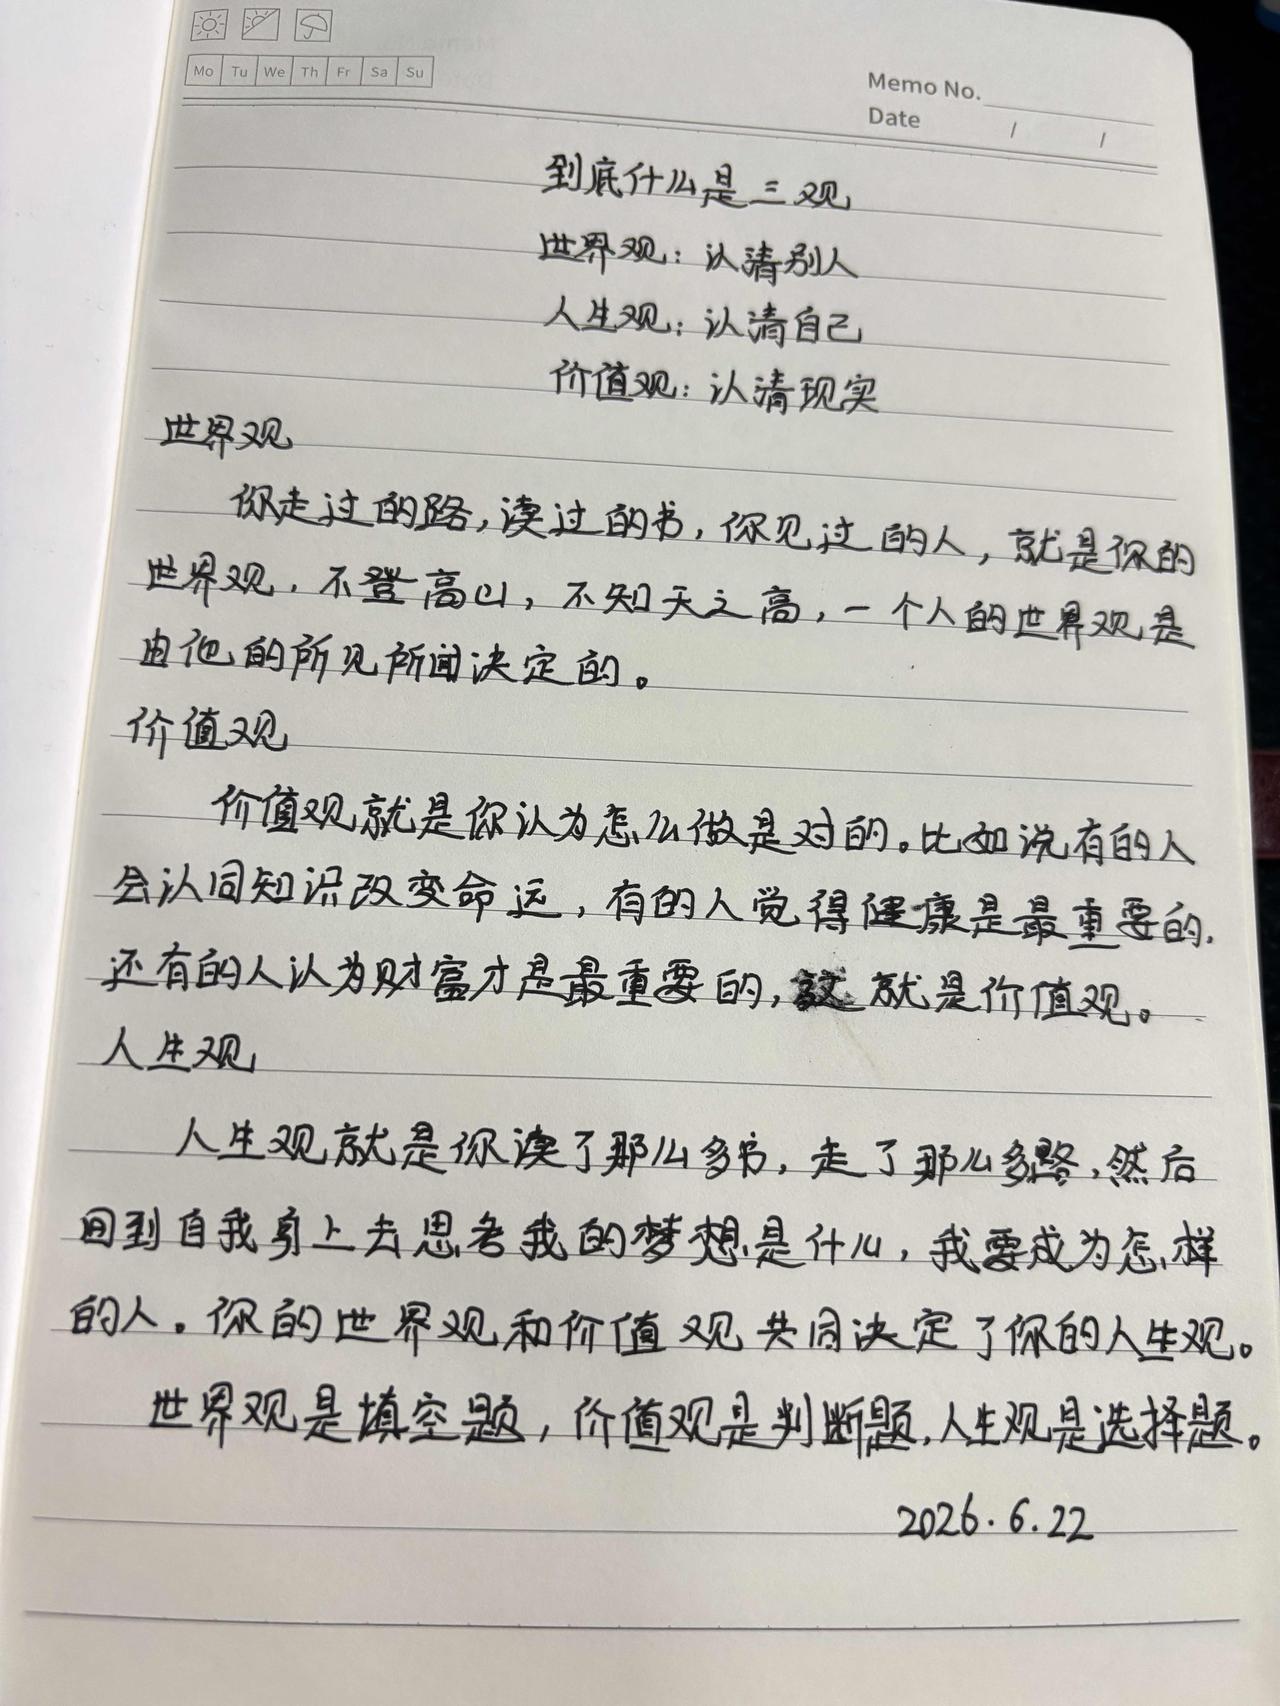 Mo Tu We Th Fr Sa Su
Memo No.
Date / /
到底什么是三观
世界观：认清别人
人生观：认清自己
价值观：认清现实
世界观
你走过的路，读过的书，你见过的人，就是你的
世界观．不登高山，不知天之高，一个人的世界观是
由他的所见所闻决定的。
价值观
价值观就是你认为怎么做是对的。比如说有的人
会认同知识改变命运，有的人觉得健康是最重要的．
还有的人认为财富才是最重要的，这就是价值观。
人生观
人生观就是你读了那么多书，走了那么多路，然后
回到自我身上去思考我的梦想是什么，我要成为怎样
的人。你的世界观和价值观共同决定了你的人生观。
世界观是填空题，价值观是判断题，人生观是选择题。
2026.6.22